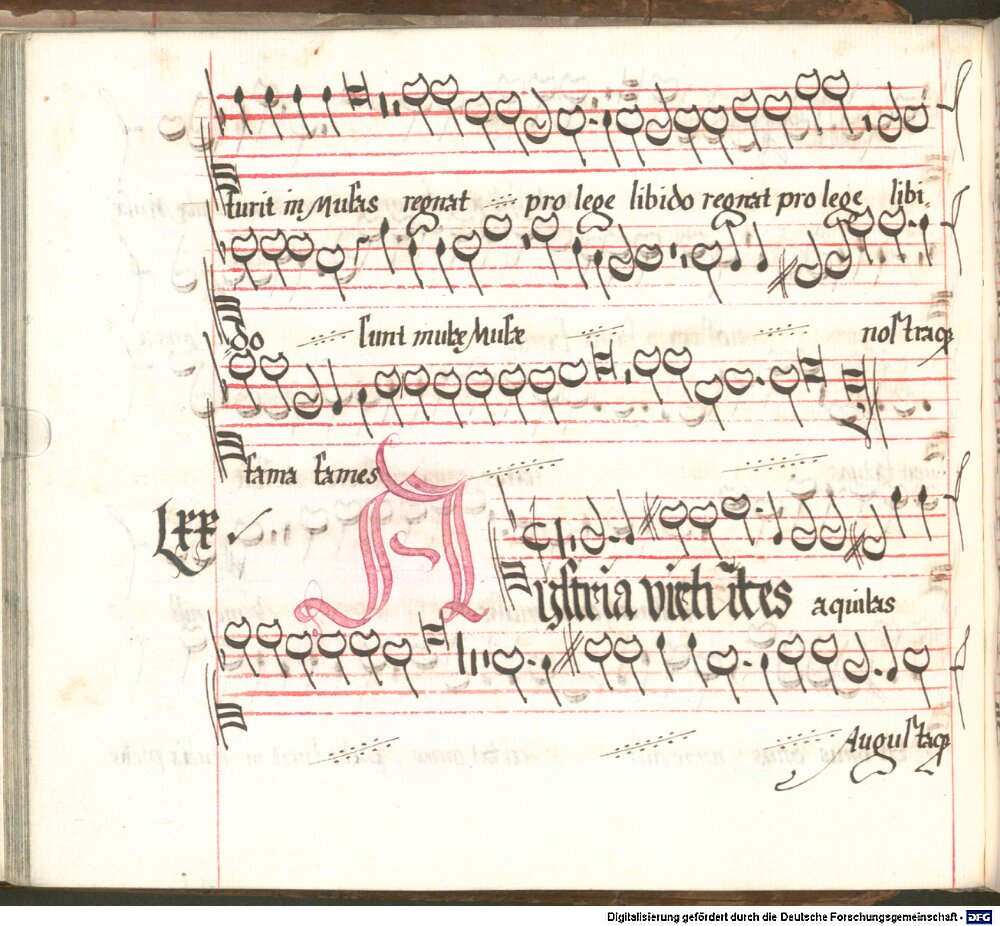 furit in Musas regnat pro lege libido regnat pro lege libi,
do sunt mutæ Musæ nostraq;
fama fames
Lxx
Aystria victrices aquilas
Augustaq;
Digitalisierung gefördert durch die Deutsche Forschungsgemeinschaft - DFG